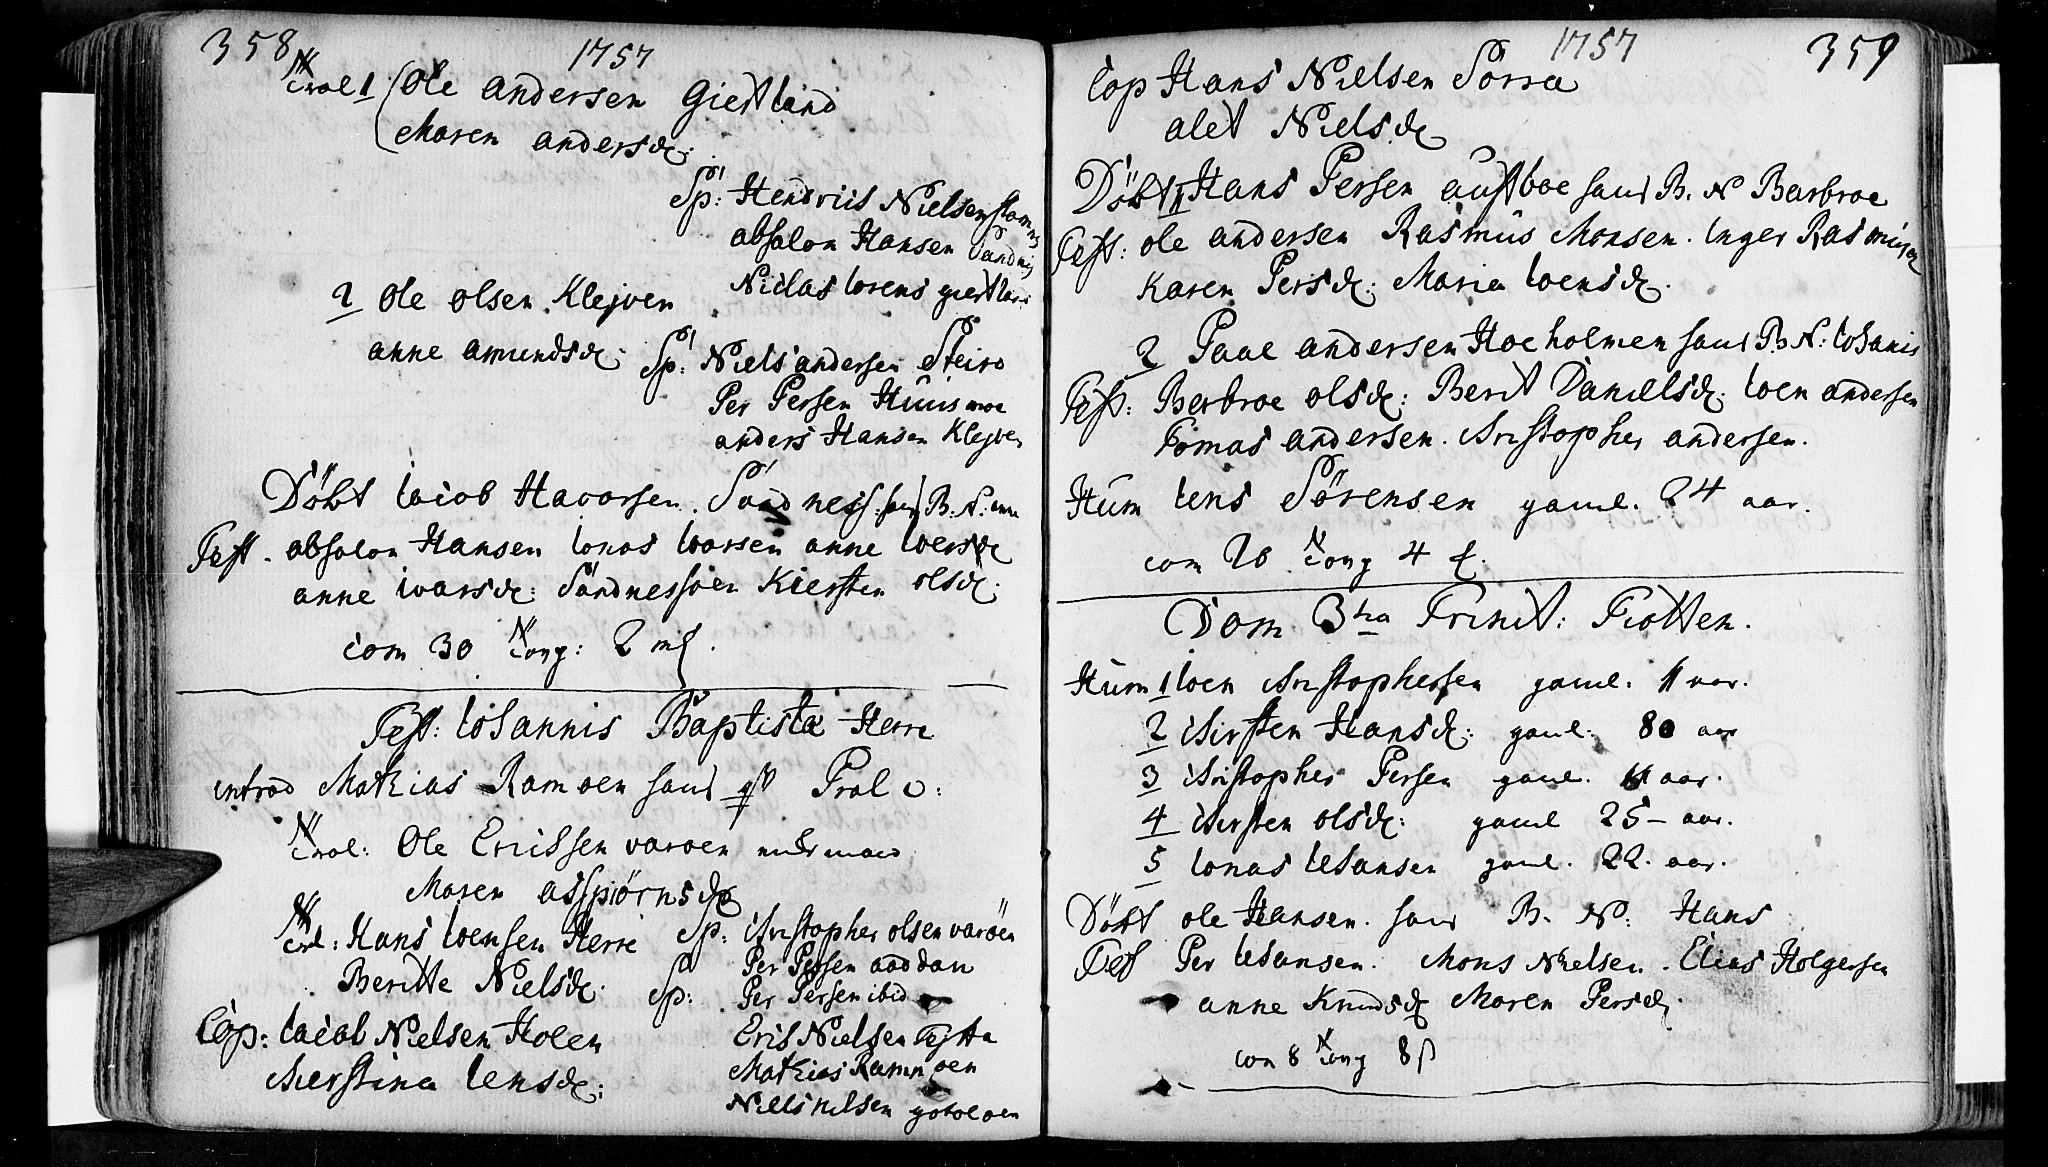 358
1757
Trol 1 Ole andersen Giertland
Maren andersd:
Sp: Hendriis Nielsen
absalon Hansen Sandnis
Niclas lorens giertland
2 Ole olsen Klejven
anne amundsd:
Sp: Niels andersen Steiro
Per Persen Huusmoe
anders Hansen Klejven
Döbt Iacob Havorsen Sandness: B: N:
Test. absalon Hansen Ionas Ivarsen anne
anne ivarsd: Sandnessoen Kiersten olsd:
com 30 cong: 2
Fest: Iohannis Baptistæ Herrø
introd Mathias Ramoen
Trol: Ole Ericssen varoen
Maren asspiörnsd
Trol: Hans Ioensen Herrø
Sp: Christopher olsen varöen
Per Persen
Beritte Nielsd:
Sp: Per Persen ibid
Cop: Iacob Nielsen Holen
Cherstina Iensd:
Eric Nielsen
Mathias Ramnoen
Niels nilsen
1757
359
Cop Hans Nielsen Sørra
alet Nielsd
Döbt 1 Hans Persen austboe B. N Barbroe
Test: ole andersen Rasmus Monsen. Inger Rasmusd
Karen Persd: Maria Ioensd.
2 Paal andersen Hoeholmen B. N: Iohanis
Test: Berbroe olsd: Berit Danielsd: Ioen andersen
Tomas andersen. Christopher andersen.
Hum Iens Sörensen gaml. 24 aar.
com 20 cong 4
Dom 3tia Trinit: Tiotten.
Hum 1 Ioen Christophersen gaml. 11 aar.
2 Chirsten Hansd: gaml: 80 aar
3 Christopher Persen gaml. aar.
4 Chirsten olsd: gaml 25 - aar.
5 Ionas Iohansen gaml. 22. aar.
Döbt ole Hansen. B. N: Hans
Test Per Iohansen. Mons Nielsen. Elias Holgersen
anne Knudsd Maren Persd:
com 8 cong 8 ß